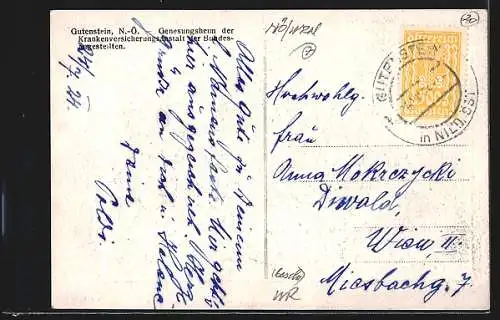 Gutenstein, N.-Ö. — Genesungsheim der
Krankenversicherungsanstalt der Bundes-
angestellten.
24/7. 24.
Alles Gute zu Deinem
Namensfeste. Hier geht's
ausgezeichnet. Herzl.
Grüße an dich u.
Deine
Poldi
NÖ/
Hochwohlg.
Frau
Anna Mokrczycki
Diwald,
Wien, II.
Miesbachg. 7.
WR
GUTENSTEIN
in NIED. ÖST.